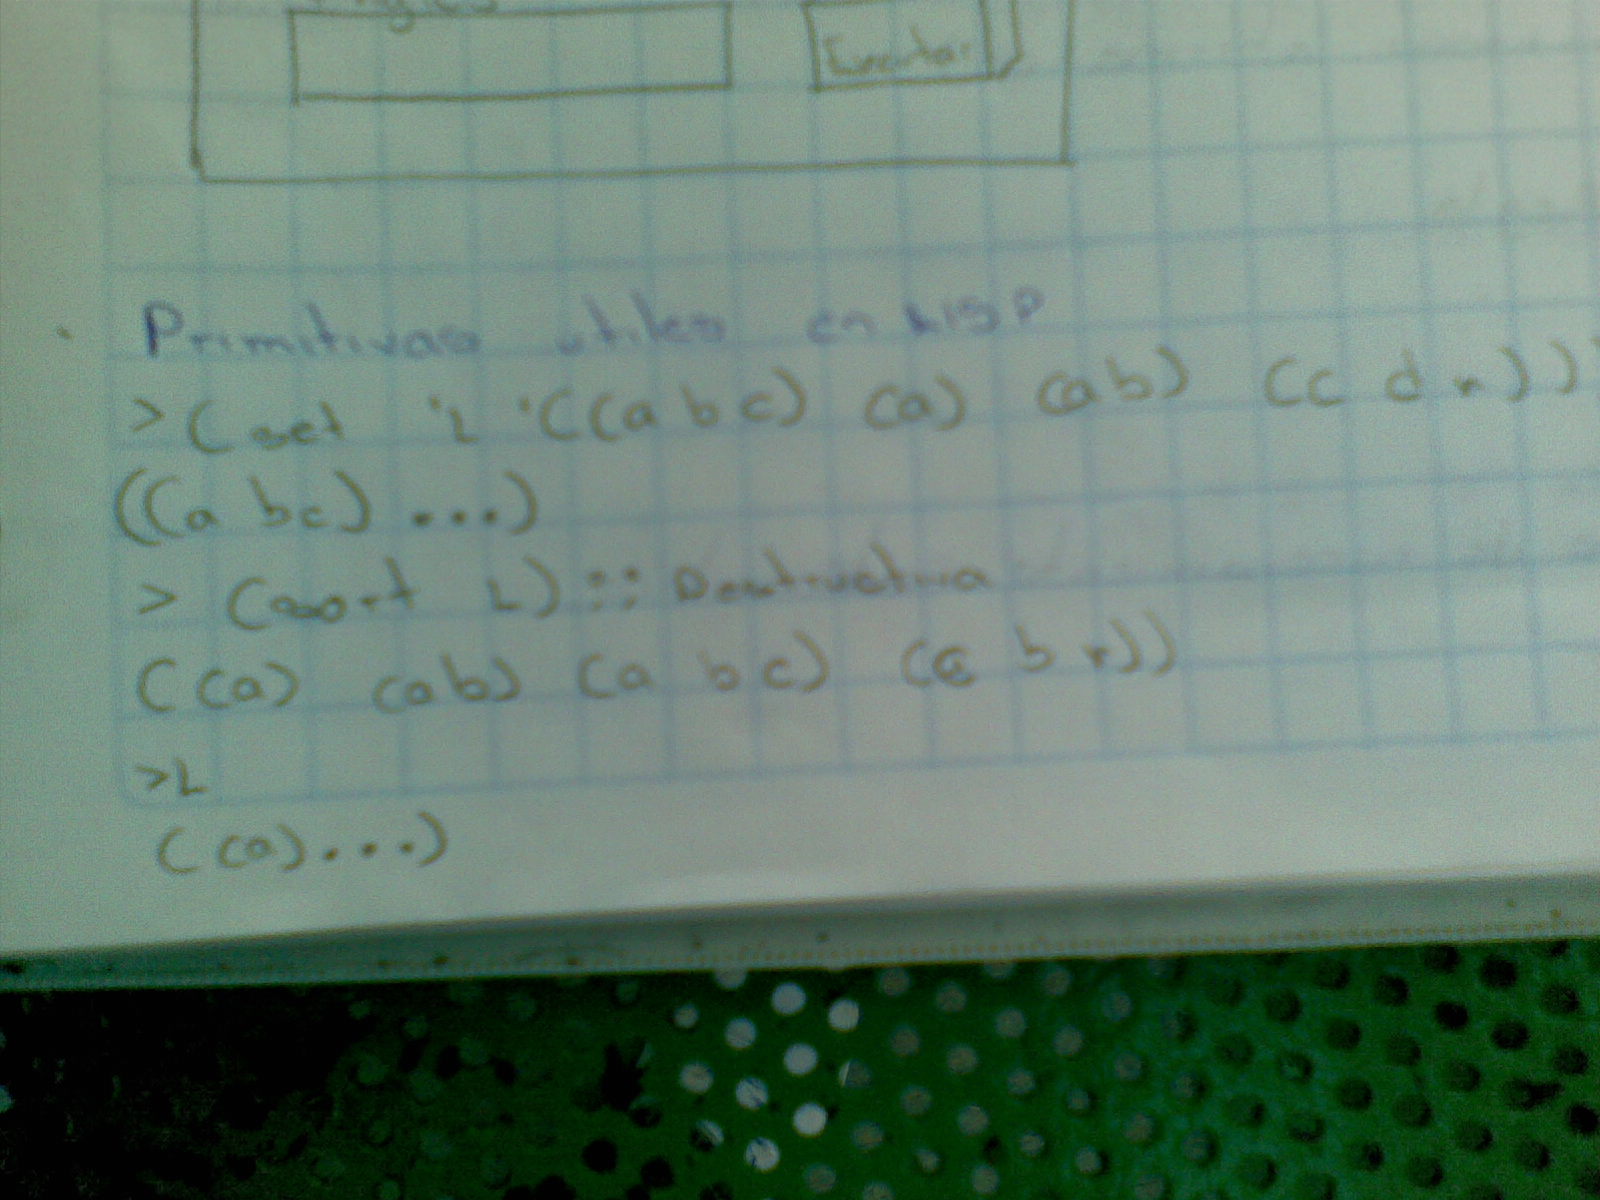 Primitivas utiles en LISP
>(set 'L '((a b c) (a) (ab) (c d r)))
((a bc) ...)
> (asort L) :: Destructiva
((a) (ab) (a b c) (c b r))
>L
((a)...)